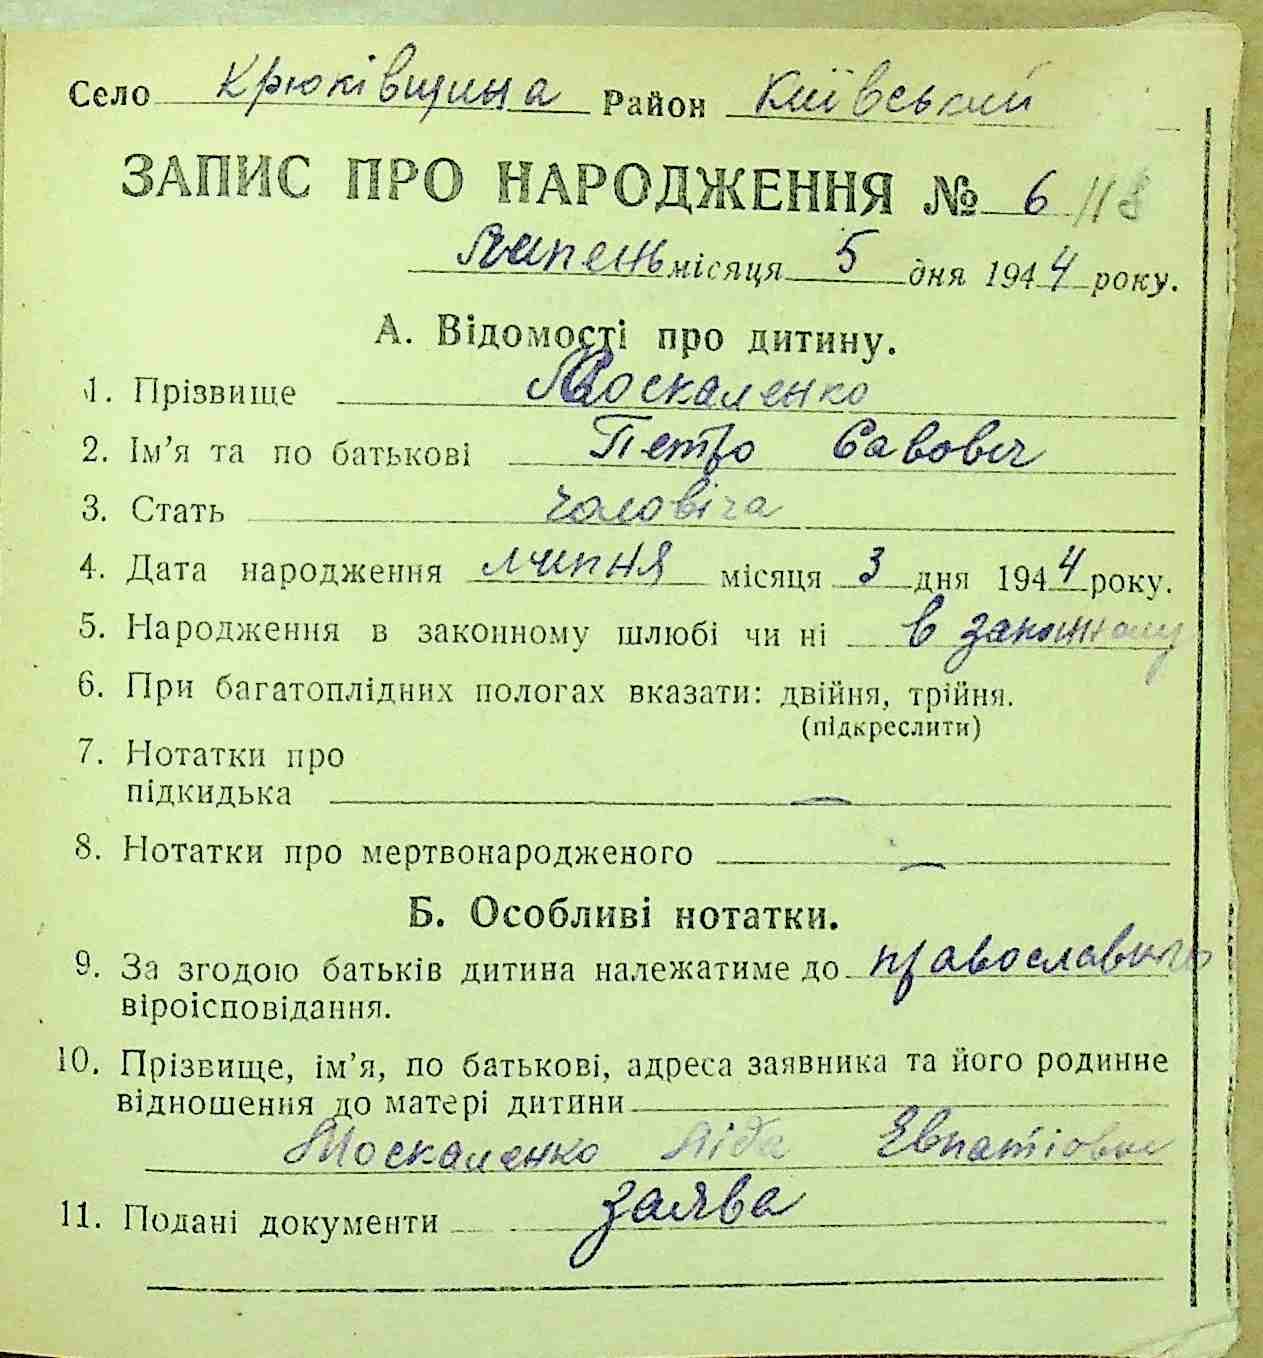 Село Крюківщина Район Київський
ЗАПИС ПРО НАРОДЖЕННЯ № 6 118
Липень місяця 5 дня 1944 року.
А. Відомості про дитину.
1. Прізвище Москаленко
2. Ім’я та по батькові Петро Савович
3. Стать чоловіча
4. Дата народження липня місяця 3 дня 1944 року.
5. Народження в законному шлюбі чи ні в законному
6. При багатоплідних пологах вказати: двійня, трійня.
(підкреслити)
7. Нотатки про
підкидька —
8. Нотатки про мертвонародженого —
Б. Особливі нотатки.
9. За згодою батьків дитина належатиме до православного
віроісповідання.
10. Прізвище, ім’я, по батькові, адреса заявника та його родинне
відношення до матері дитини
Москаленко Ліда
11. Подані документи заява